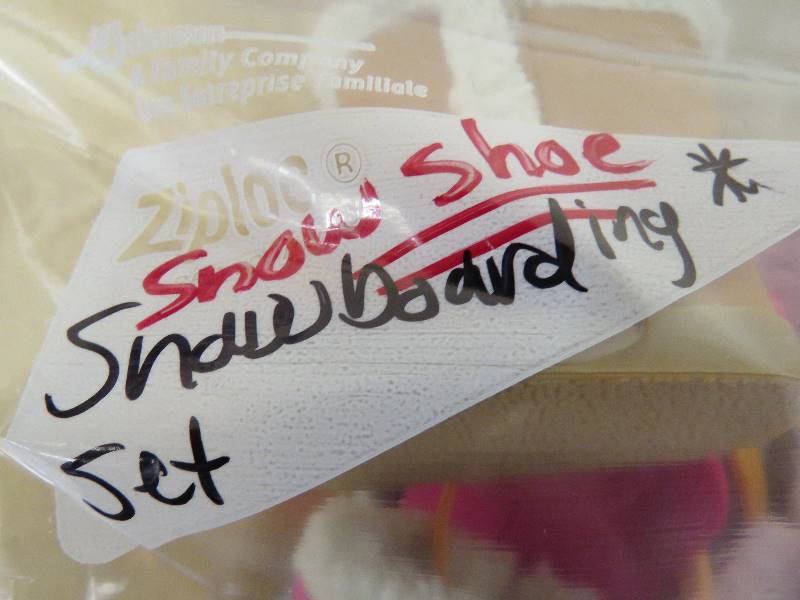 Johnson
A Family Company
Une Entreprise Familiale
Ziploc®
Snow Shoe
Snowboarding *
Set